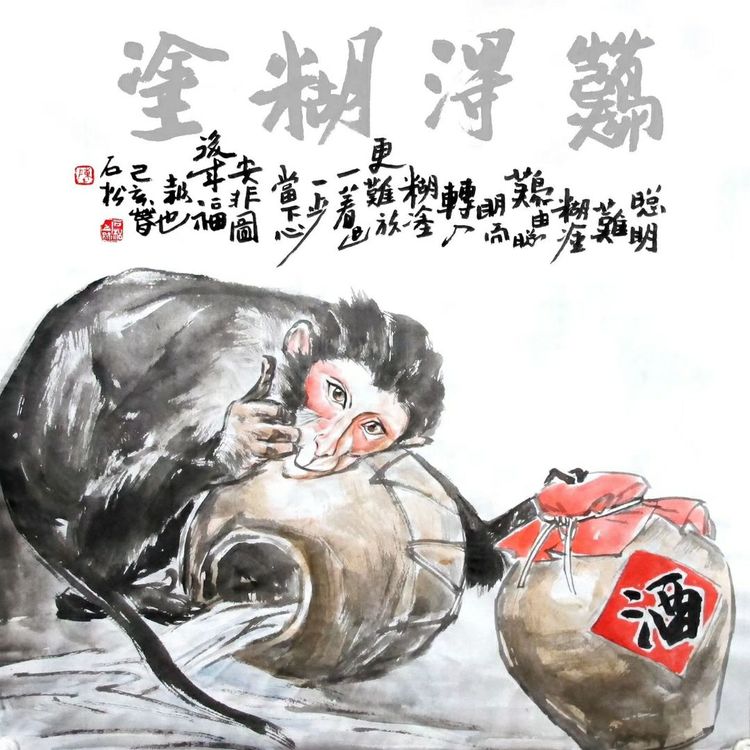 難得糊塗
聰明
難
糊塗
難由聰
明而
轉入
糊塗
更難放
一着退
一步
當下心
安非圖
後來福
報也
己亥
石松
酒